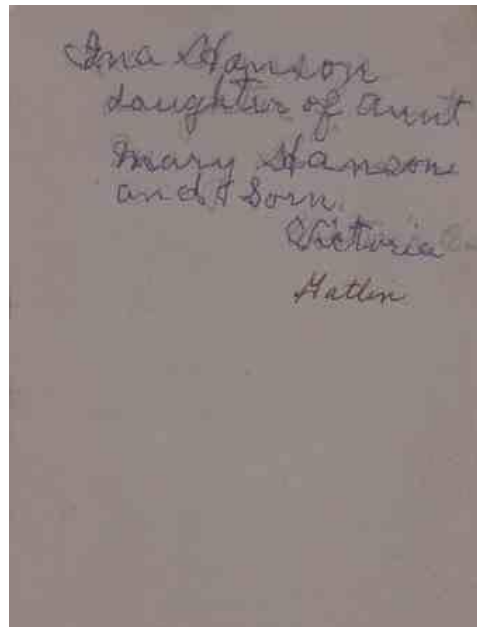 Ina Hanson
daughter of aunt
Mary Hanson
and Sorn.
Victoria
Hatlen